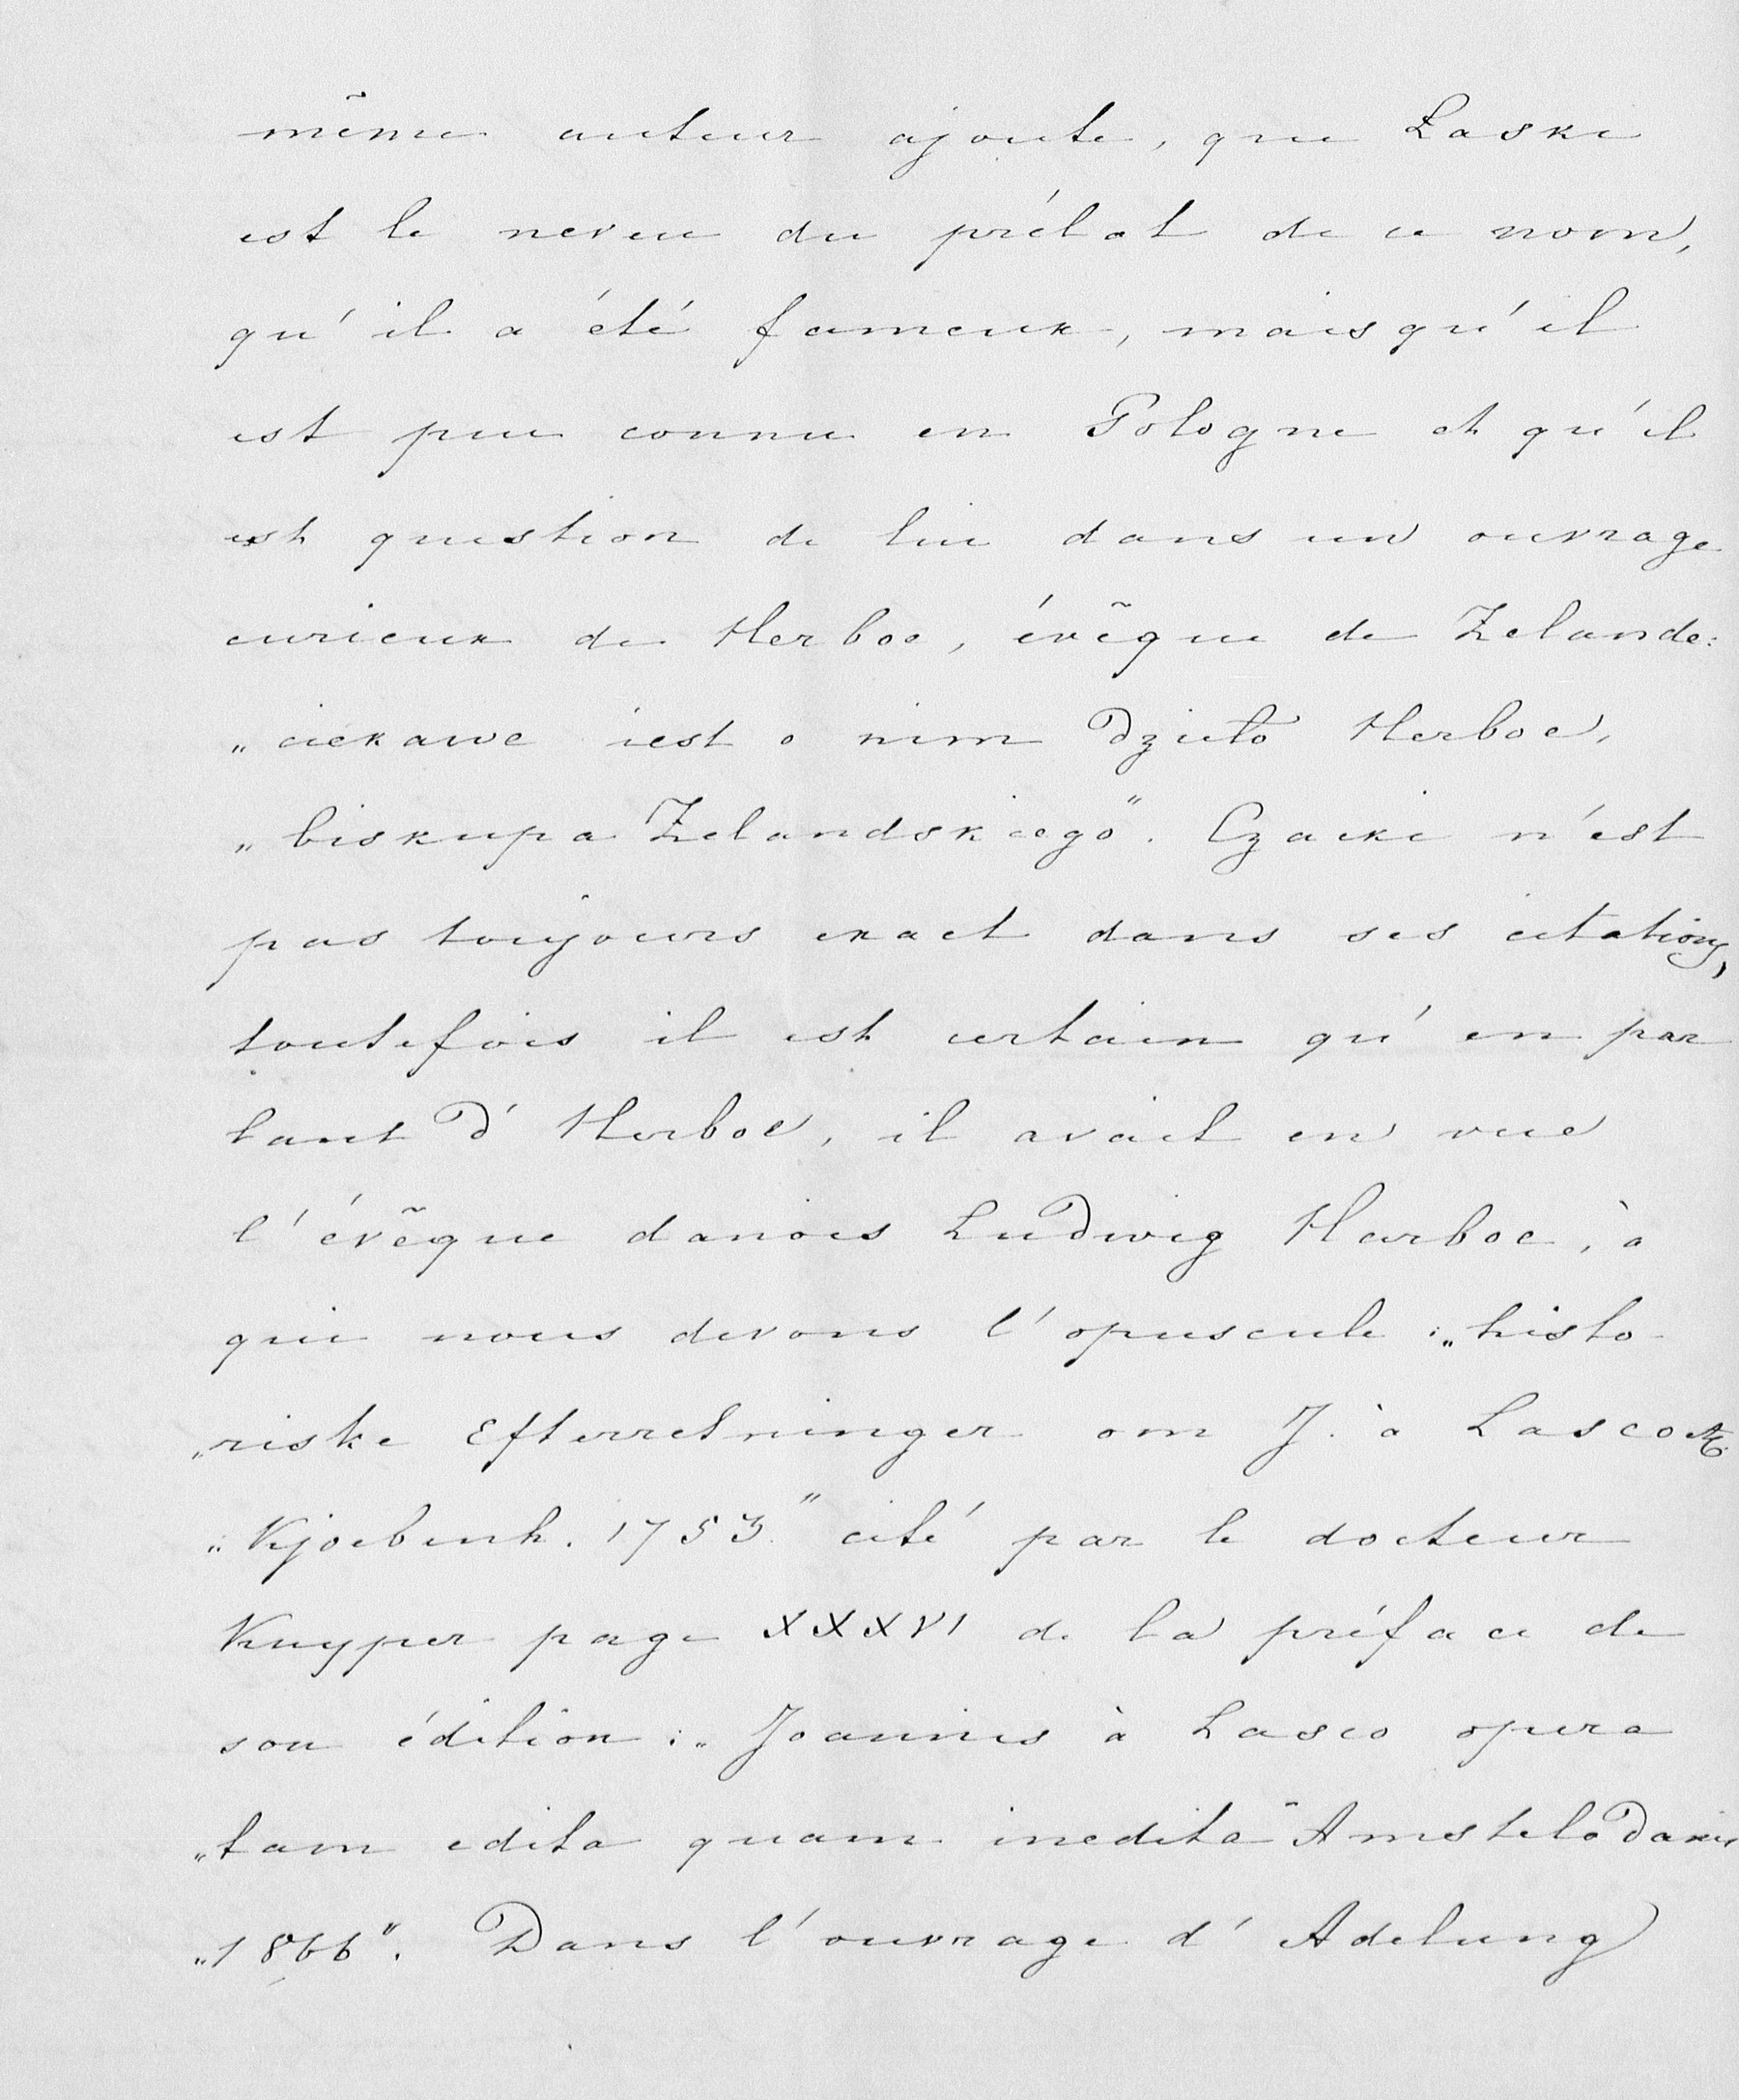 même auteur ajoute, que Łaski
est le neveu du prélat de ce nom,
qu'il a été fameux, mais qu'il
est peu connu en Pologne et qu'il
est question de lui dans un ouvrage
curieux de Herboe, évêque de Zelande:
„ciekawe iest o nim dzieło Herboe,
„biskupa Zelandskiego". Czacki n'est
pas toujours exact dans ses citations,
toutefois il est certain qu'en par
lant d'Herboe, il avait en vue
l'évêque danois Ludwig Harboe, à
qui nous devons l'opuscule: „histo-
„riske Efterretninger om J. à Lasco
„Kjoebenh. 1753." cité par le docteur
Kuyper page XXXVI de la préface de
son édition: „Joannis à Lasco opera
„tam edita quam inedita Amstelodami
„1866". Dans l'ouvrage d'Adelung